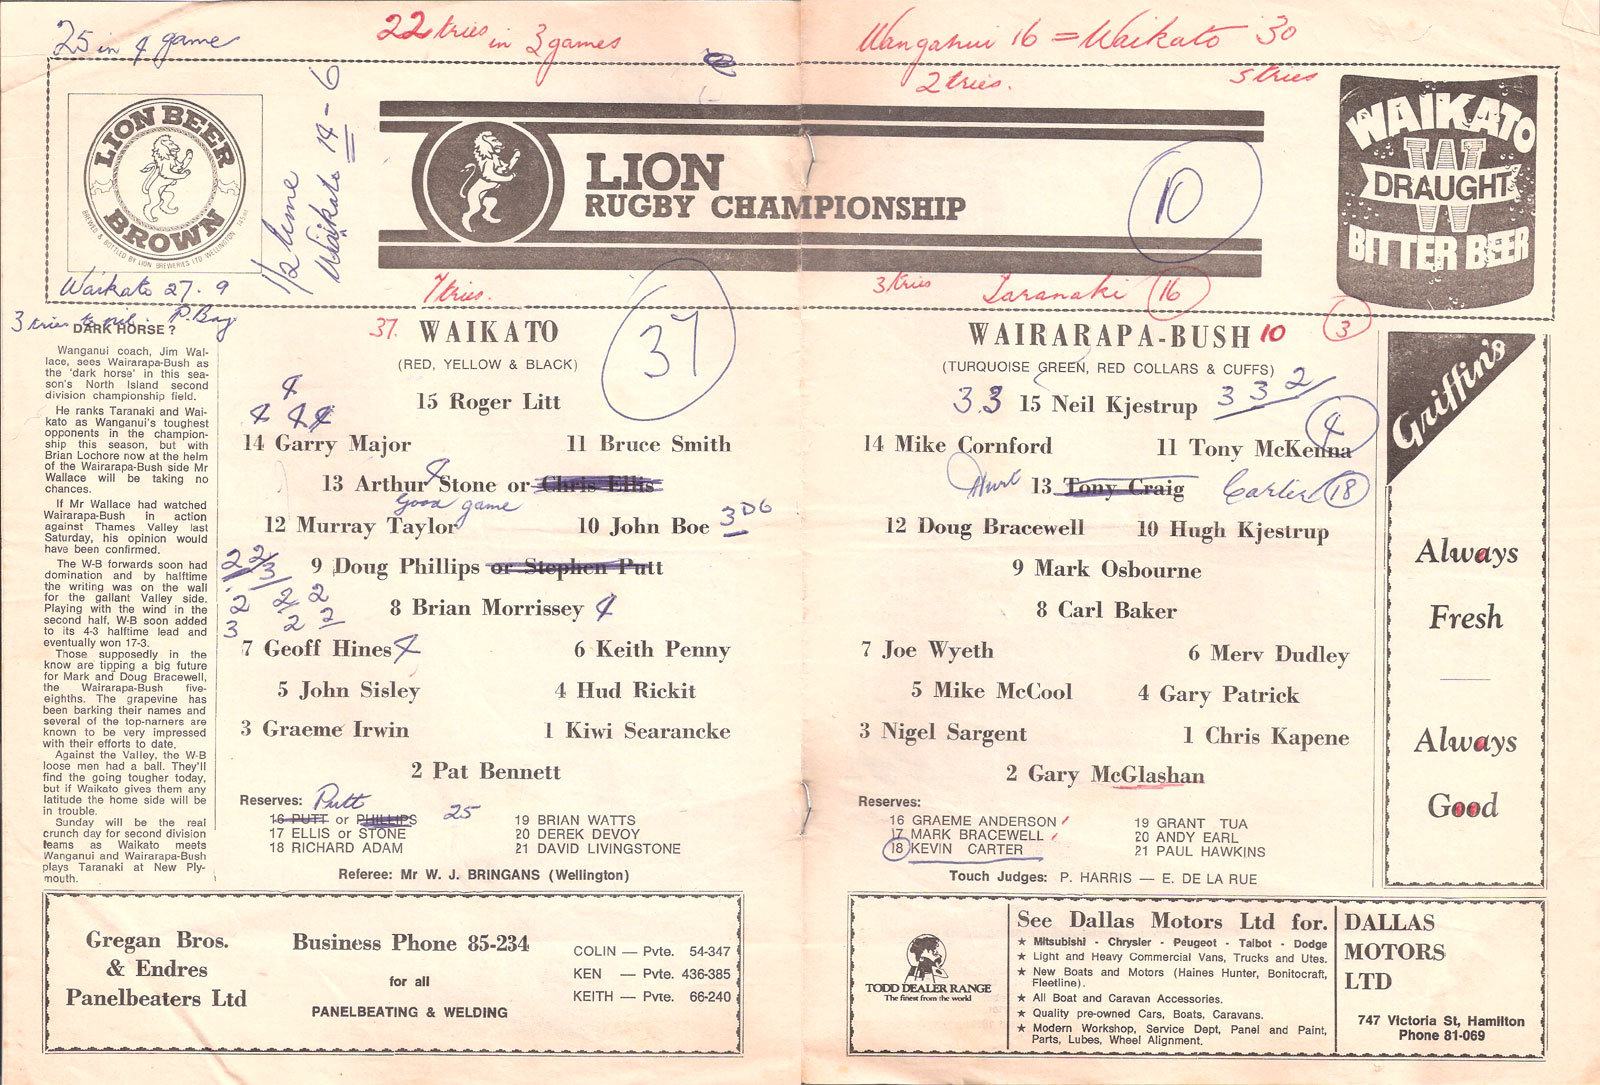 25 in 4 game
22 tries in 3 games
Wanganui 16 = Waikato 30
2 tries.
5 tries
LION BEER
BROWN
BREWED & BOTTLED BY LION BREWERIES LTD WELLINGTON
1/2 time
Waikato 14 - 6
LION
RUGBY CHAMPIONSHIP
10
WAIKATO
W
DRAUGHT
BITTER BEER
Waikato 27.9
3 tries to nil. P. Bay
7 tries.
3 tries Taranaki 16
3
DARK HORSE?
Wanganui coach, Jim Wal-
lace, sees Wairarapa-Bush as
the 'dark horse' in this sea-
son's North Island second
division championship field.
He ranks Taranaki and Wai-
kato as Wanganui's toughest
opponents in the champion-
ship this season, but with
Brian Lochore now at the helm
of the Wairarapa-Bush side Mr
Wallace will be taking no
chances.
If Mr Wallace had watched
Wairarapa-Bush in action
against Thames Valley last
Saturday, his opinion would
have been confirmed.
The W-B forwards soon had
domination and by halftime
the writing was on the wall
for the gallant Valley side.
Playing with the wind in the
second half, W-B soon added
to its 4-3 halftime lead and
eventually won 17-3.
Those supposedly in the
know are tipping a big future
for Mark and Doug Bracewell,
the Wairarapa-Bush five-
eighths. The grapevine has
been barking their names and
several of the top-narners are
known to be very impressed
with their efforts to date.
Against the Valley, the W-B
loose men had a ball. They'll
find the going tougher today,
but if Waikato gives them any
latitude the home side will be
in trouble.
Sunday will be the real
crunch day for second division
teams as Waikato meets
Wanganui and Wairarapa-Bush
plays Taranaki at New Ply-
mouth.
37. WAIKATO
37
(RED, YELLOW & BLACK)
4
15 Roger Litt
4 4 4
14 Garry Major 11 Bruce Smith
4
13 Arthur Stone or Chris Ellis
Good game
12 Murray Taylor 10 John Boe 3 DG
2 2/3
9 Doug Phillips or Stephen Putt
2 2/2 2
8 Brian Morrissey 4
3 2 2
7 Geoff Hines 4 6 Keith Penny
5 John Sisley 4 Hud Rickit
3 Graeme Irwin 1 Kiwi Searancke
2 Pat Bennett
Reserves: Putt
16 PUTT or PHILLIPS 25 19 BRIAN WATTS
17 ELLIS or STONE 20 DEREK DEVOY
18 RICHARD ADAM 21 DAVID LIVINGSTONE
Referee: Mr W. J. BRINGANS (Wellington)
WAIRARAPA-BUSH 10
(TURQUOISE GREEN, RED COLLARS & CUFFS)
3 3 15 Neil Kjestrup 3 3 2
4
14 Mike Cornford 11 Tony McKenna
Hurt 13 Tony Craig Carter 18
12 Doug Bracewell 10 Hugh Kjestrup
9 Mark Osbourne
8 Carl Baker
7 Joe Wyeth 6 Merv Dudley
5 Mike McCool 4 Gary Patrick
3 Nigel Sargent 1 Chris Kapene
2 Gary McGlashan
Reserves:
16 GRAEME ANDERSON 19 GRANT TUA
17 MARK BRACEWELL 20 ANDY EARL
18 KEVIN CARTER 21 PAUL HAWKINS
Touch Judges: P. HARRIS — E. DE LA RUE
Griffin's
Always
Fresh
Always
Good
Gregan Bros.
& Endres
Panelbeaters Ltd
Business Phone 85-234
for all
PANELBEATING & WELDING
COLIN — Pvte. 54-347
KEN — Pvte. 436-385
KEITH — Pvte. 66-240
TODD DEALER RANGE
The finest from the world
See Dallas Motors Ltd for.
★ Mitsubishi - Chrysler - Peugeot - Talbot - Dodge
★ Light and Heavy Commercial Vans, Trucks and Utes.
★ New Boats and Motors (Haines Hunter, Bonitocraft,
Fleetline).
★ All Boat and Caravan Accessories.
★ Quality pre-owned Cars, Boats, Caravans.
★ Modern Workshop, Service Dept, Panel and Paint,
Parts, Lubes, Wheel Alignment.
DALLAS
MOTORS
LTD
747 Victoria St, Hamilton
Phone 81-069